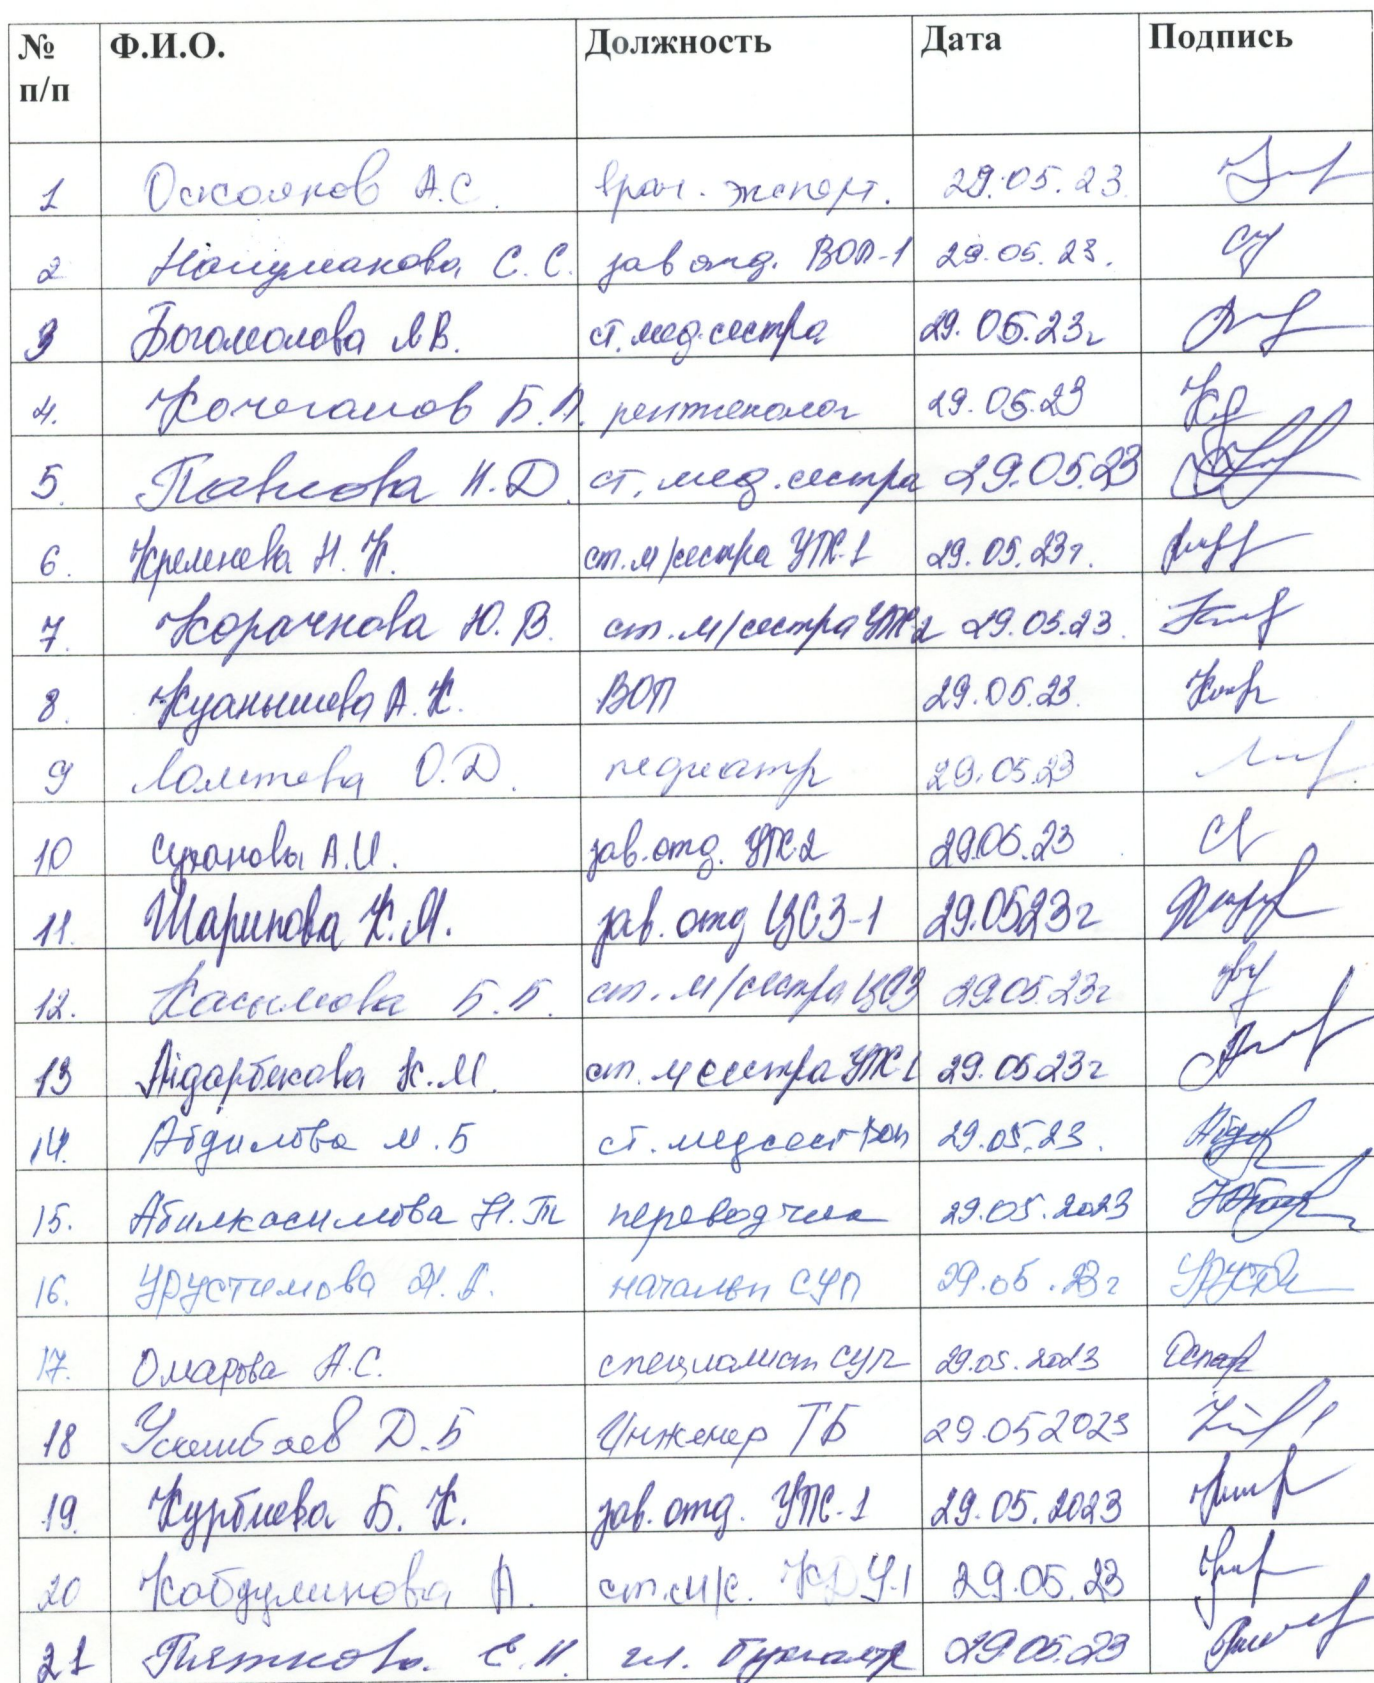 № п/п Ф.И.О. Должность Дата Подпись
1 А.С. врач. эксперт. 29.05.23.
2 С.С. зав отд. ВОП-1 29.05.23.
3 Богомолова ЛВ. ст. мед. сестра 29.05.23г
4. Б. рентгенолог 29.05.23
5. Павлова Н.Д. ст. мед. сестра 29.05.23
6. Н.К. ст. м/сестра УПС-1 29.05.23г.
7. Корачкова Ю.В. ст. м/сестра УПС-2 29.05.23.
8. Куанышева А.К. ВОП 29.05.23.
9 О.Д. педиатр 29.05.23
10 А.И. зав. отд. УПС2 29.05.23
11. Шарипова К.М. зав. отд ЦСЗ-1 29.0523г
12. Касымова Б.Б. ст. м/сестра ЦСЗ 29.05.23г
13 Айдарбекова К.М. ст. м сестра УПС 1 29.05.23г
14. Абдилова М.Б ст. медсест 29.05.23.
15. Абилкасимова Н.Т переводчик 29.05.2023
16. Урустимова А. начальн СУП 29.05.23г
17. Омарова А.С. специалист СУП 29.05.2023
18 Д.Б Инженер ТБ 29.052023
19. Курбиева Б.К. зав. отд. УПС-1 29.05.2023
20 Кабдуликова А. ст. м/с. КДУ-1 29.05.23
21 Пяткова Е.Н. гл. бухгалтр 29.05.23